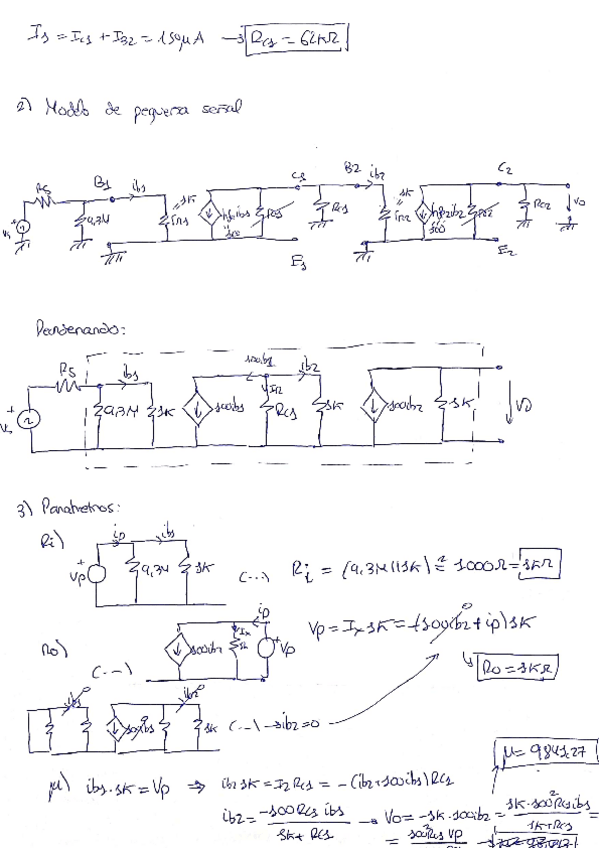 I1 = Ic1 + IB2 = 150µA → Rc1 = 62KΩ
2) Modelo de pequeña señal
Rs B1 ib1 1K C1 B2 ib2 1K C2
vs 9,3M rπ1 hfe1ib1 ro1 Rc1 rπ2 hfe2ib2 ro2 Rc2 vo
100 100
E1 E2
Ordenando:
Rs ib1 100ib1 ib2
Vs 9,3M 1K 100ib1 I2 Rc1 1K 100ib2 1K VO
3) Parámetros:
Ri) ip ib1
Vp 9,3M 1K (...) Ri = (9,3M||1K) ≅ 1000Ω = 1KΩ
Ro) (...) 100ib2 Ix 1K ip Vp Vp = Ix 1K = (100ib2 + ip) 1K
Ro = 1KΩ
ib1 0 100ib1 0 ib2 0 1K (...) → ib2 = 0
µ = 9841,27
µ) ib1·1K = Vp ⇒ ib2 1K = I2 Rc1 = -(ib2+100ib1) Rc1
ib2 = -100Rc1 ib1 / 1K + Rc1 → Vo = -1K·100ib2 = 1K·100² Rc1 ib1 / 1K + Rc1 =
= 100² Rc1 Vp